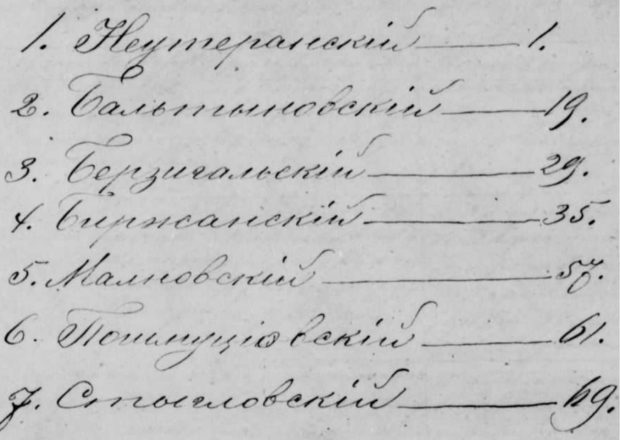 1. Неутеранскій — 1.
2. Бальтыновскій — 19.
3. Берзигальскій — 29.
4. Биржанскій — 35.
5. Малновскій — 57.
6. — 61.
7. — 69.